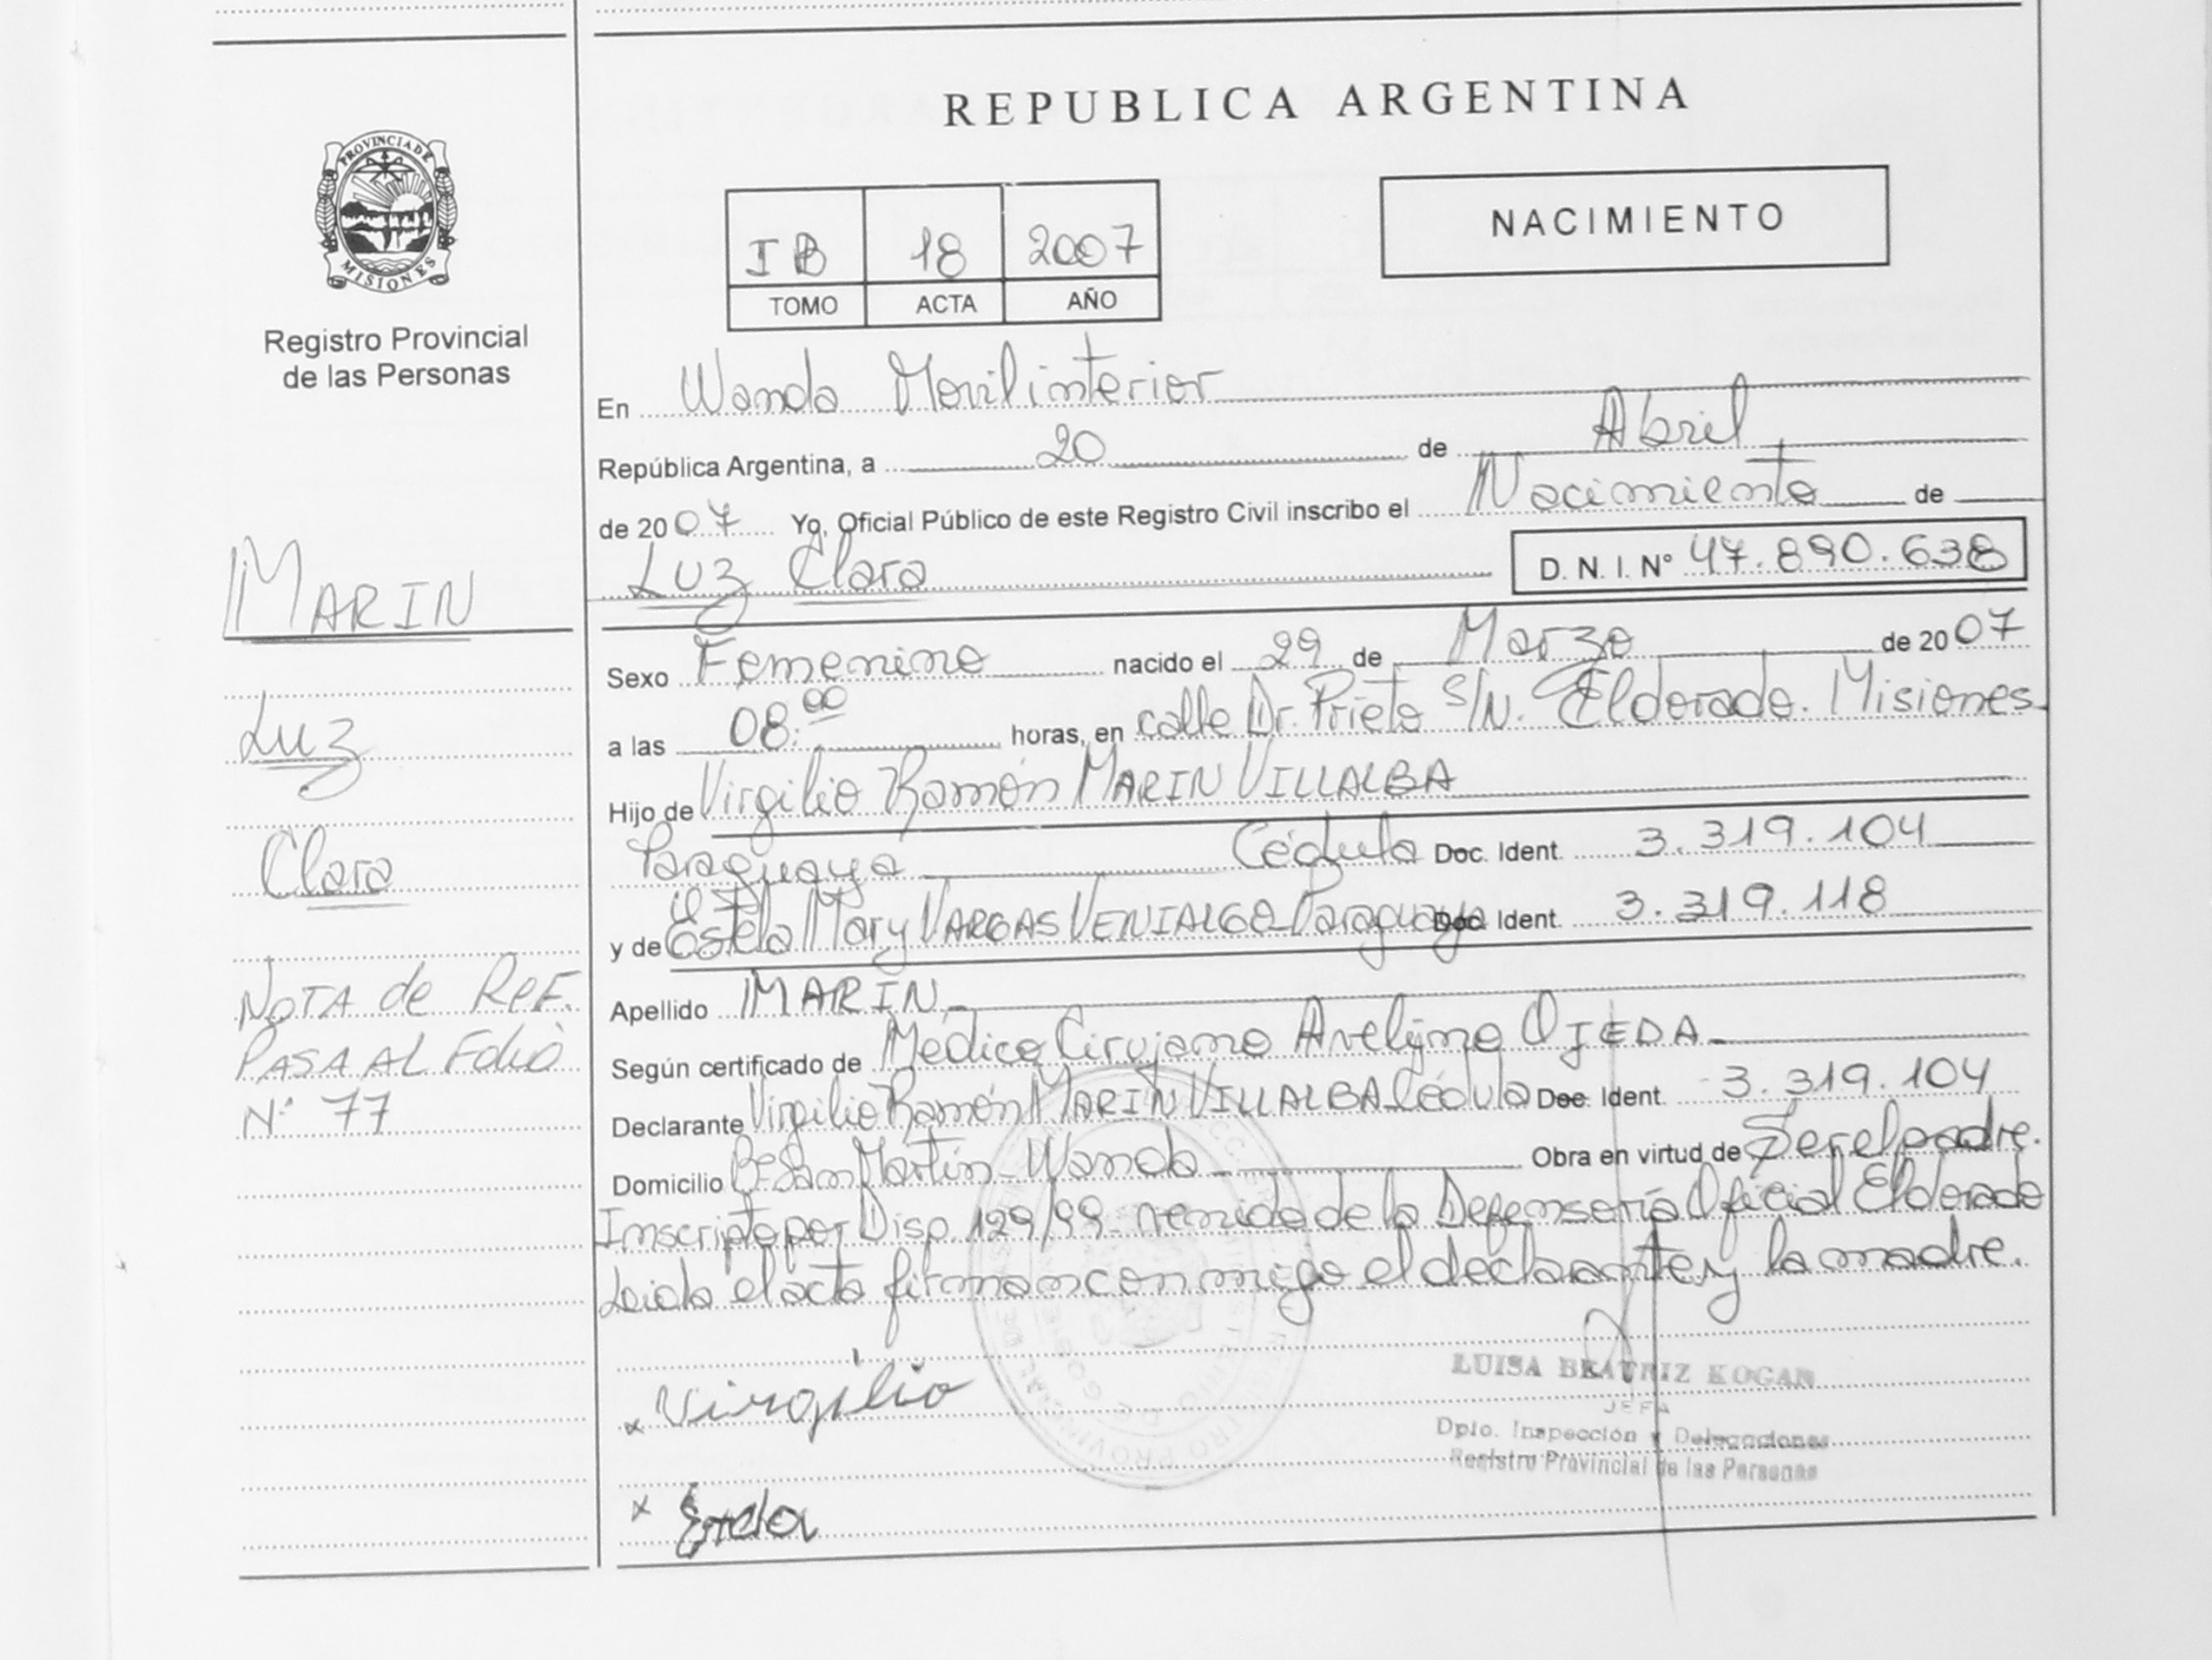 REPUBLICA ARGENTINA
PROVINCIA DE
MISIONES
Registro Provincial
de las Personas
I B 18 2007
TOMO ACTA AÑO
NACIMIENTO
En Wanda Movil interior
República Argentina, a 20 de Abril
de 2007 Yo, Oficial Público de este Registro Civil inscribo el Nacimiento de
Luz Clara D. N. I. Nº 47.890.638
MARIN
Luz
Clara
NOTA de REF.
PASA AL Folio
Nº 77
Sexo Femenino nacido el 29 de Marzo de 2007
a las 08:00 horas, en calle Dr. Prieto S/N. Eldorado. Misiones
Hijo de Virgilio Ramón MARIN VILLALBA
Paraguaya Cédula Doc. Ident. 3.319.104
y de Estela Mary VARGAS VENIALGO Paraguaya Doc. Ident. 3.319.118
Apellido MARIN
Según certificado de Médico Cirujano Avelino OJEDA
Declarante Virgilio Ramón MARIN VILLALBA Cédula Doc. Ident. 3.319.104
Domicilio Bº San Martín - Wanda Obra en virtud de Ser el padre.
Inscripto por Disp. 129/99 - de la Defensoría Oficial Eldorado
Leida el acta firman conmigo el declarante y la madre.
x Virgilio
LUISA BEATRIZ KOGAN
JEFA
Dpto. Inspección y Delegaciones
Registro Provincial de las Personas
x Estela